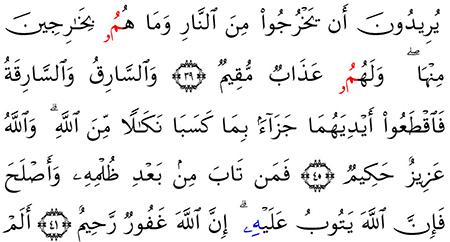 يُرِيدُونَ أَن يَخْرُجُوا۟ مِنَ ٱلنَّارِ وَمَا هُمُۥ بِخَٰرِجِينَ
مِنْهَا ۖ وَلَهُمُۥ عَذَابٌ مُّقِيمٌ ٣٩ وَٱلسَّارِقُ وَٱلسَّارِقَةُ
فَٱقْطَعُوٓا۟ أَيْدِيَهُمَا جَزَآءًۢ بِمَا كَسَبَا نَكَٰلًا مِّنَ ٱللَّهِ ۗ وَٱللَّهُ
عَزِيزٌ حَكِيمٌ ٤٠ فَمَن تَابَ مِنۢ بَعْدِ ظُلْمِهِۦ وَأَصْلَحَ
فَإِنَّ ٱللَّهَ يَتُوبُ عَلَيْهِۦ ۗ إِنَّ ٱللَّهَ غَفُورٌ رَّحِيمٌ ٤١ أَلَمْ